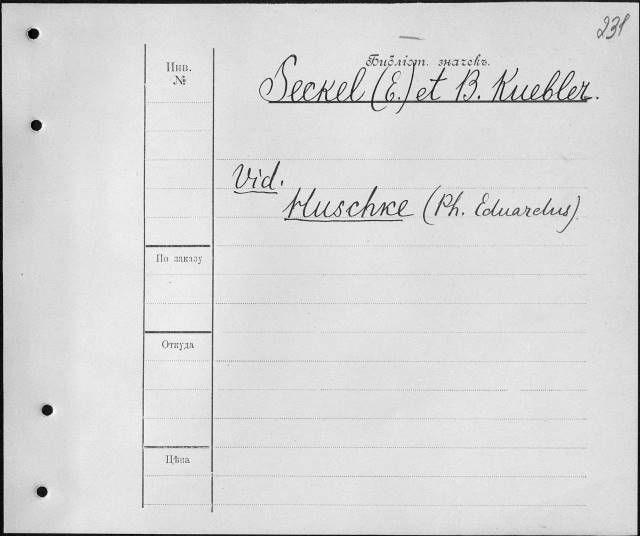 231
Библіот. значекъ.
Инв.
№
Seckel (E.) et B. Kuebler.
Vid.
Huschke (Ph. Eduardus)
По заказу
Откуда
Цѣна